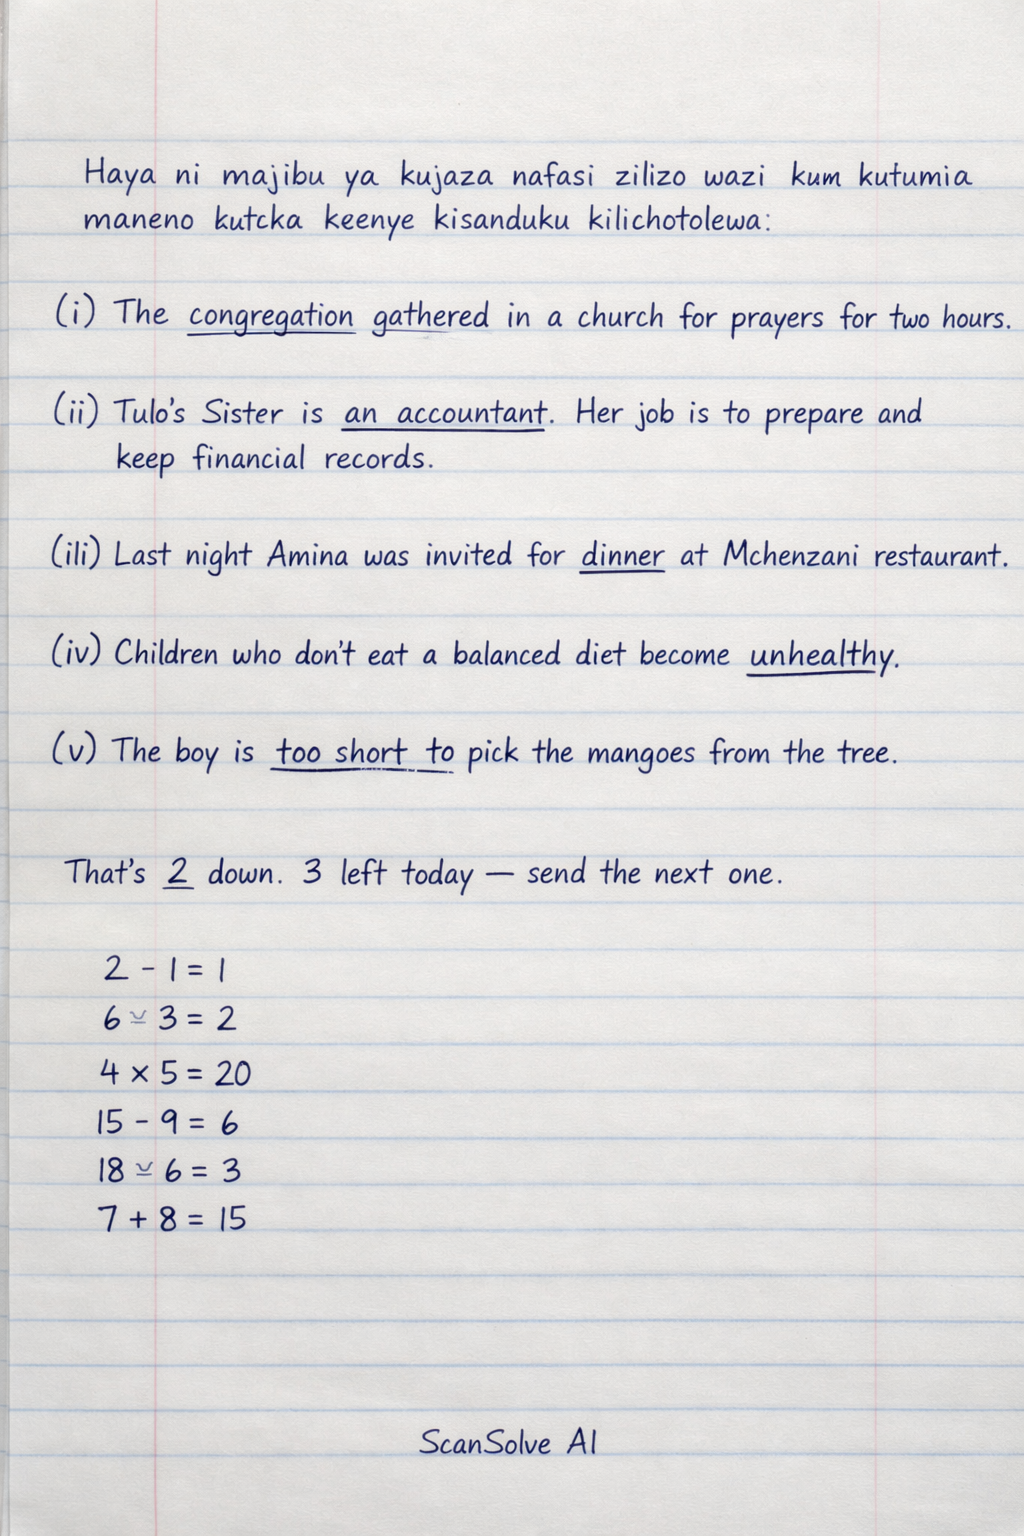 Haya ni majibu ya kujaza nafasi zilizo wazi kum kutumia
maneno kutcka keenye kisanduku kilichotolewa:
(i) The congregation gathered in a church for prayers for two hours.
(ii) Tulo's Sister is an accountant. Her job is to prepare and
keep financial records.
(ili) Last night Amina was invited for dinner at Mchenzani restaurant.
(iv) Children who don't eat a balanced diet become unhealthy.
(v) The boy is too short to pick the mangoes from the tree.
That's 2 down. 3 left today — send the next one.
2 - 1 = 1
6 ⩡ 3 = 2
4 × 5 = 20
15 - 9 = 6
18 ⩡ 6 = 3
7 + 8 = 15
ScanSolve AI